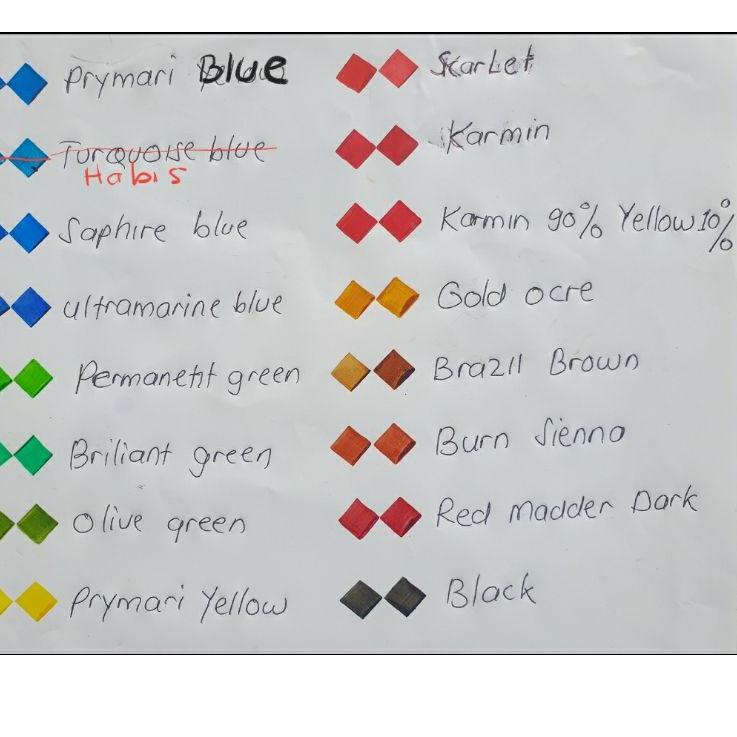 Prymari Blue
Turquoise blue
Habis
Saphire blue
ultramarine blue
Permanetit green
Briliant green
Olive green
Prymari Yellow
Skarlet
Karmin
Karmin 90% Yellow 10%
Gold ocre
Brazil Brown
Burn Sienna
Red madder Dark
Black